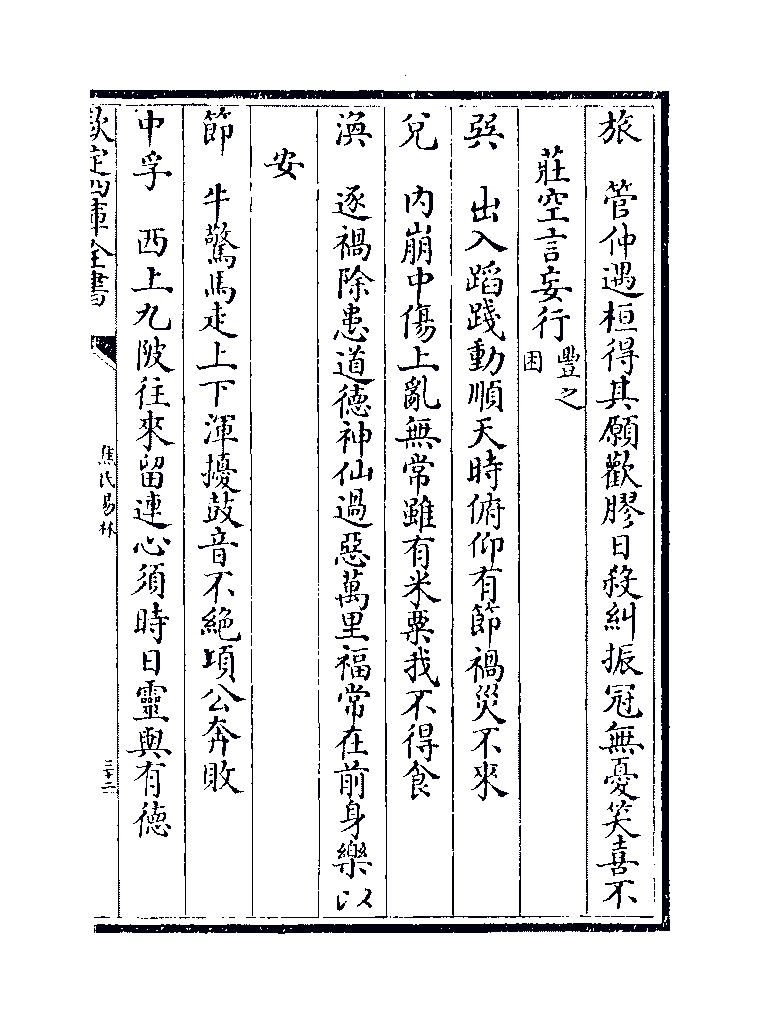 旅　管仲遇桓得其願歡膠日殺糾振冠無憂笑喜不
莊空言妄行豐之困
巽　出入蹈踐動順天時俯仰有節禍災不來
兌　内崩中傷上亂無常雖有米粟我不得食
渙　逐禍除患道德神仙過惡萬里福常在前身樂以
安
節　牛驚馬走上下渾擾鼓音不絶項公奔敗
中孚　西上九陂往來留連心須時日靈與有德
欽定四庫全書
焦氏易林
三十二